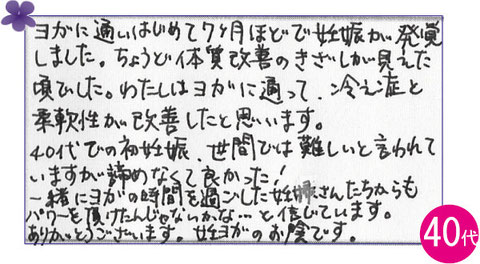 ヨガに通いはじめて7ヶ月ほどで妊娠が発覚
しました。ちょうど体質改善のきざしが見えた
頃でした。わたしはヨガに通って、冷え症と
柔軟性が改善したと思います。
40代での初妊娠、世間では難しいと言われて
いますが諦めなくて良かった!
一緒にヨガの時間を過ごした妊婦さんたちからも
パワーを頂けたんじゃないかな…と信じています。
ありがとうございます。妊ヨガのお陰です。
40代